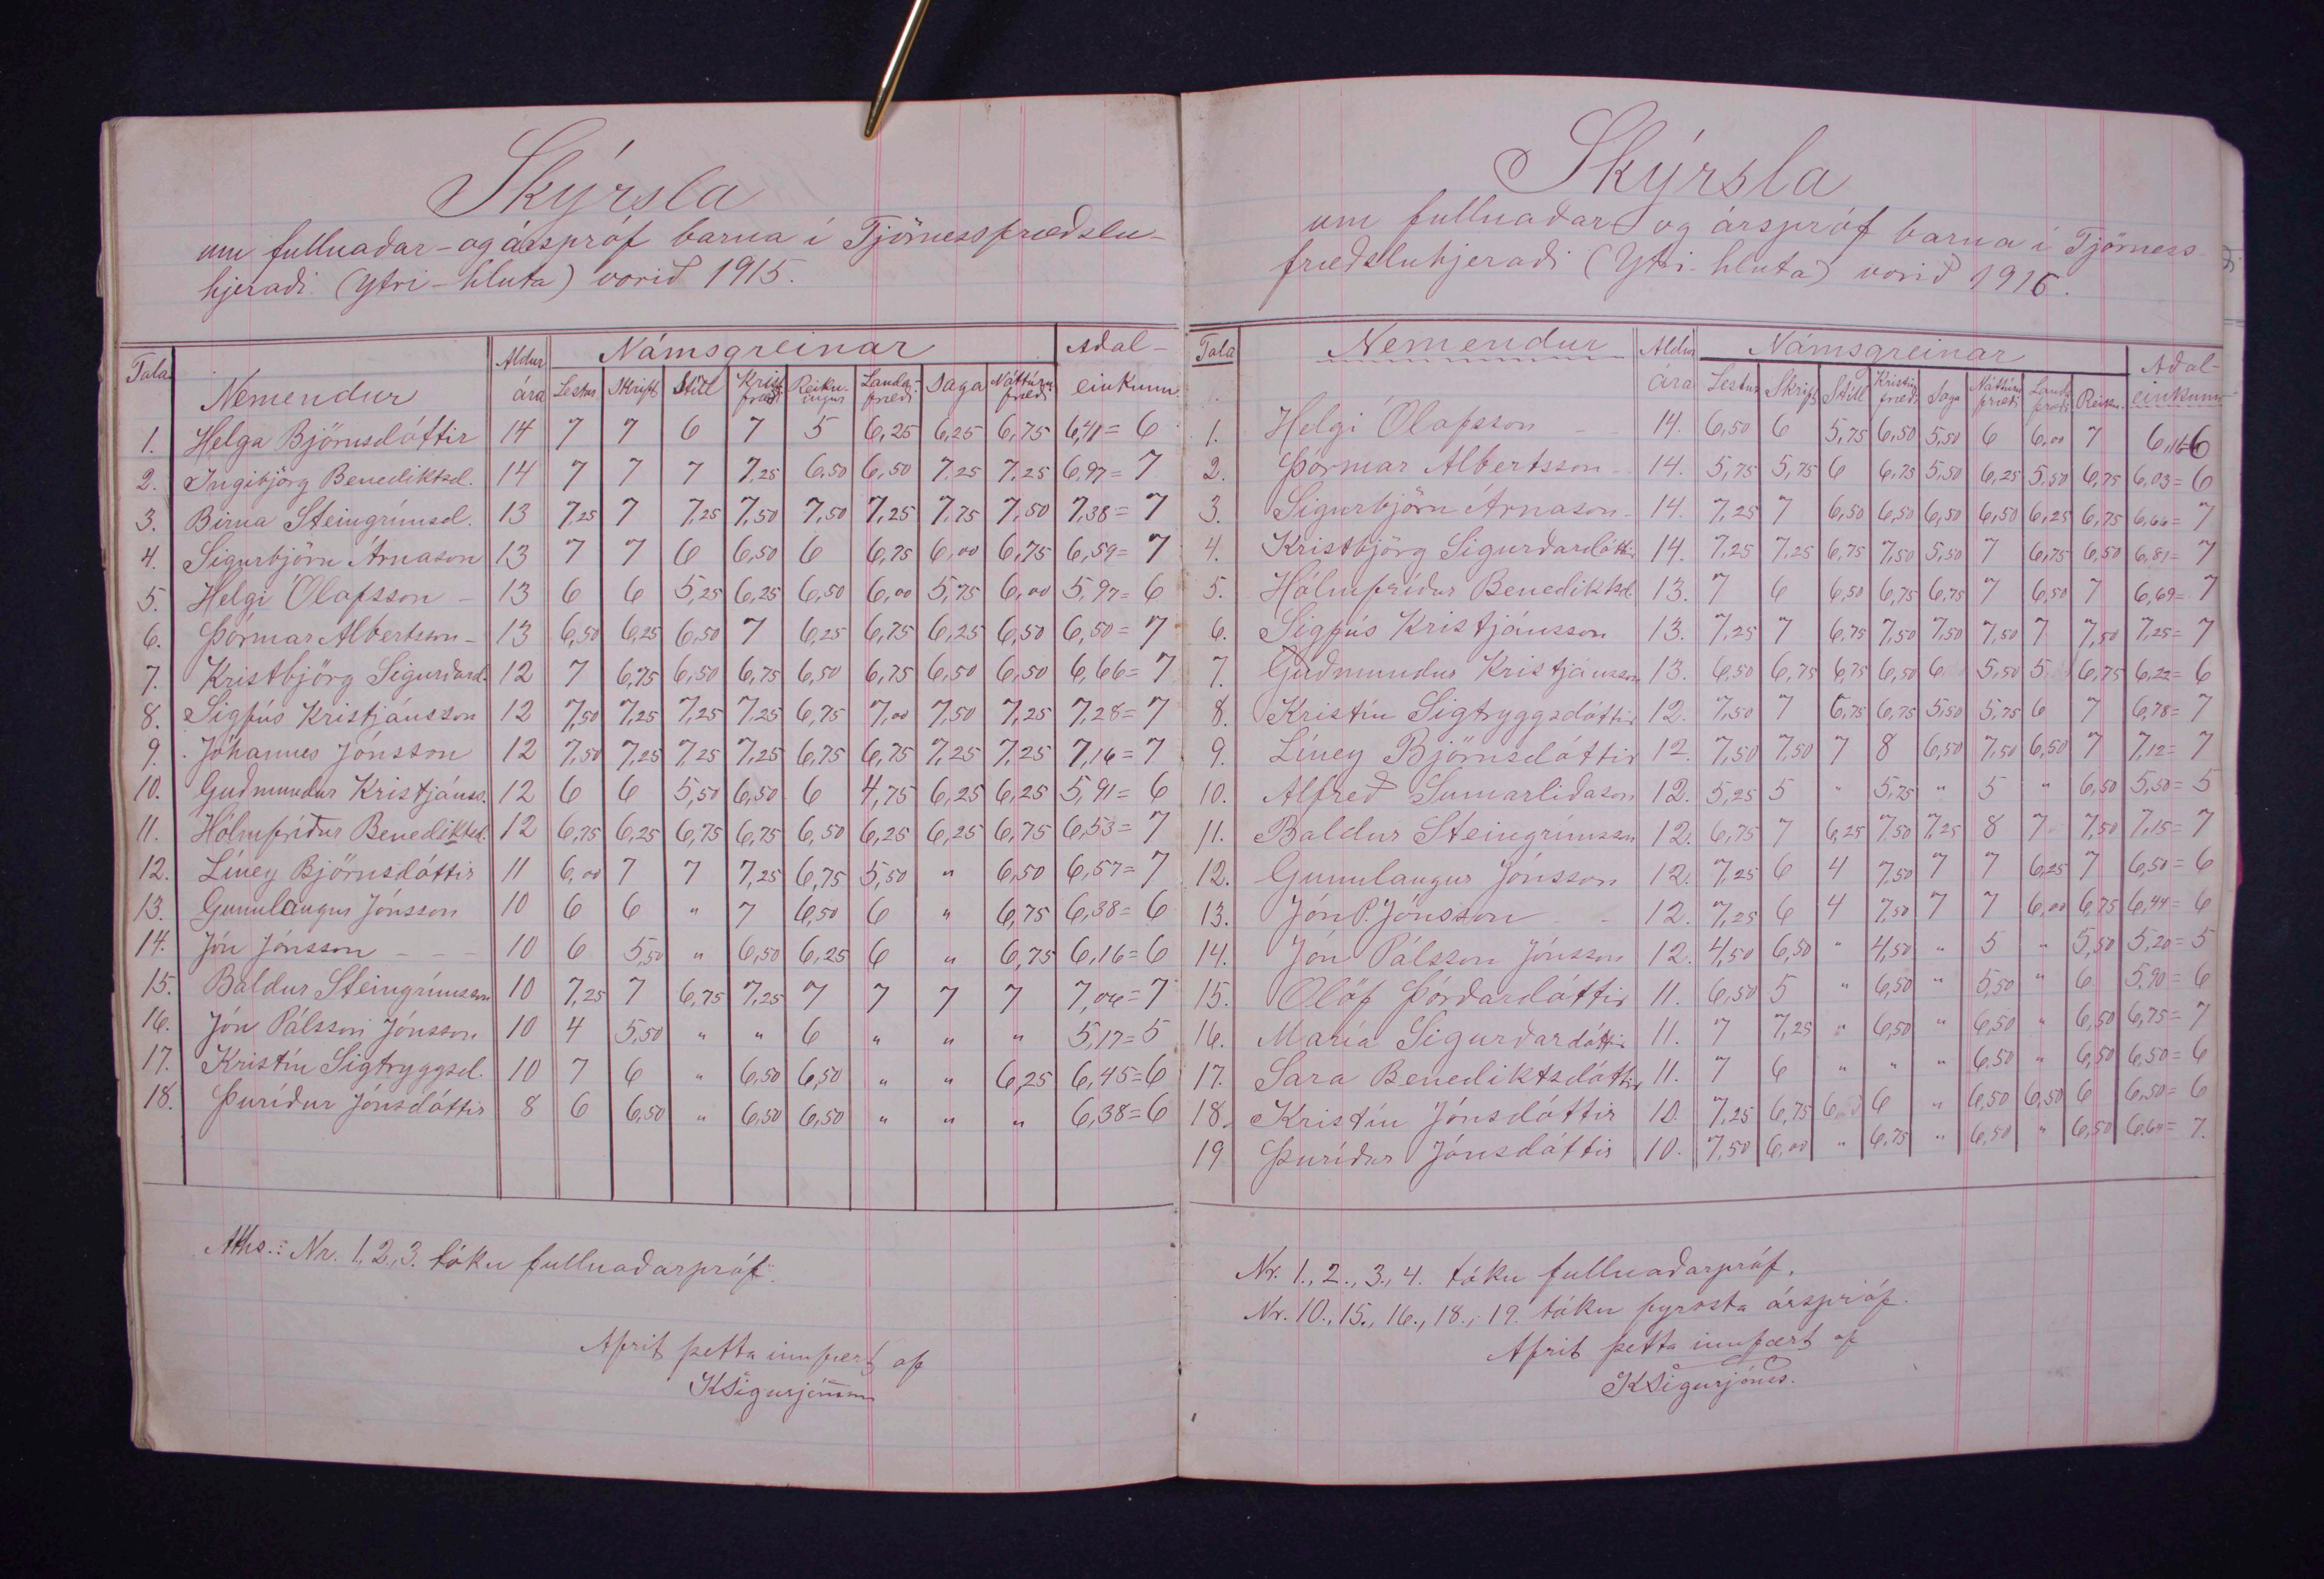 Skýrsla
um fullnaðar- og árspróf barna í Tjörnessfræðslu-
hjeraði (Ytri-hluta) vorið 1915.
Tala Nemendur Aldur ára Námsgreinar Aðal-einkunn
Lestur Skrift Stíll Kristfræði Reikningur Landafræði Saga Náttúrufræði
1. Helga Björnsdóttir 14 7 7 6 7 5 6,25 6,25 6,75 6,41 = 6
2. Ingibjörg Benediktsd. 14 7 7 7 7,25 6,50 6,50 7,25 7,25 6,97 = 7
3. Birna Steingrímsd. 13 7,25 7 7,25 7,50 7,50 7,25 7,75 7,50 7,38 = 7
4. Sigurbjörn Árnason 13 7 7 6 6,50 6 6,75 6,00 6,75 6,59 = 7
5. Helgi Ólafsson - 13 6 6 5,25 6,25 6,50 6,00 5,75 6,00 5,97 = 6
6. Þormar Albertsson - 13 6,50 6,25 6,50 7 6,25 6,75 6,25 6,50 6,50 = 7
7. Kristbjörg Sigurðard. 12 7 6,75 6,50 6,75 6,50 6,75 6,50 6,50 6,66 = 7
8. Sigfús Kristjánsson 12 7,50 7,25 7,25 7,25 6,75 7,00 7,50 7,25 7,28 = 7
9. Jóhannes Jónsson 12 7,50 7,25 7,25 7,25 6,75 6,75 7,25 7,25 7,16 = 7
10. Guðmundur Kristjánss. 12 6 6 5,50 6,50 6 4,75 6,25 6,25 5,91 = 6
11. Hólmfríður Benediktsd. 12 6,75 6,25 6,75 6,75 6,50 6,25 6,25 6,75 6,53 = 7
12. Líney Björnsdóttir 11 6,00 7 7 7,25 6,75 5,50 " 6,50 6,57 = 7
13. Gunnlaugur Jónsson 10 6 6 " 7 6,50 6 " 6,75 6,38 = 6
14. Jón Jónsson - - - 10 6 5,50 " 6,50 6,25 6 " 6,75 6,16 = 6
15. Baldur Steingrímsson 10 7,25 7 6,75 7,25 7 7 7 7 7,06 = 7
16. Jón Pálsson Jónsson 10 4 5,50 " " 6 " " " 5,17 = 5
17. Kristín Sigtryggsd. 10 7 6 " 6,50 6,50 " " 6,25 6,45 = 6
18. Þuríður Jónsdóttir 8 6 6,50 " 6,50 6,50 " " " 6,38 = 6
Aths.: Nr. 1, 2, 3. tóku fullnaðarpróf.
Afrit þetta innfært af
KSigurjónsson
Skýrsla
um fullnaðar og árspróf barna í Tjörness-
fræðsluhjeraði (Ytri-hluta) vorið 1916.
Tala Nemendur Aldur ára Námsgreinar Aðal-einkunn
Lestur Skrift Stíll Kristinfræði Saga Náttúrufræði Landafræði Reikn.
1. Helgi Ólafsson - - 14. 6,50 6 5,75 6,50 5,50 6 6,00 7 6,16=6
2. Þormar Albertsson - 14. 5,75 5,75 6 6,75 5,50 6,25 5,50 6,75 6,03 = 6
3. Sigurbjörn Árnason - 14. 7,25 7 6,50 6,50 6,50 6,50 6,25 6,75 6,66 = 7
4. Kristbjörg Sigurðardóttir 14. 7,25 7,25 6,75 7,50 5,50 7 6,75 6,50 6,81 = 7
5. Hólmfríður Benediktsd. 13. 7 6 6,50 6,75 6,75 7 6,50 7 6,69 = 7
6. Sigfús Kristjánsson 13. 7,25 7 6,75 7,50 7,50 7,50 7 7,50 7,25 = 7
7. Guðmundur Kristjánsson 13. 6,50 6,75 6,75 6,50 6 5,50 5 6,75 6,22 = 6
8. Kristín Sigtryggsdóttir 12. 7,50 7 6,75 6,75 5,50 5,75 6 7 6,78 = 7
9. Líney Björnsdóttir 12. 7,50 7,50 7 8 6,50 7,50 6,50 7 7,12 = 7
10. Alfreð Sumarliðason 12. 5,25 5 " 5,75 " 5 " 6,50 5,50 = 5
11. Baldur Steingrímsson 12. 6,75 7 6,25 7,50 7,25 8 7 7,50 7,15 = 7
12. Gunnlaugur Jónsson 12. 7,25 6 4 7,50 7 7 6,25 7 6,50 = 6
13. Jón P. Jónsson - - 12. 7,25 6 4 7,50 7 7 6,00 6,75 6,44 = 6
14. Jón Pálsson Jónsson 12. 4,50 6,50 " 4,50 " 5 " 5,50 5,20 = 5
15. Ólöf Þórðardóttir 11. 6,50 5 " 6,50 " 5,50 " 6 5,90 = 6
16. María Sigurðardóttir 11. 7 7,25 " 6,50 " 6,50 " 6,50 6,75 = 7
17. Sara Benediktsdóttir 11. 7 6 " " " 6,50 " 6,50 6,50 = 6
18. Kristín Jónsdóttir 10. 7,25 6,75 6 " 6,50 6,50 6 6,50 = 6
19 Þuríður Jónsdóttir 10. 7,50 6,00 " 6,75 " 6,50 " 6,50 6,64 = 7.
Nr. 1., 2., 3., 4. tóku fullnaðarpróf.
Nr. 10., 15., 16., 18., 19. tóku fyrosta árspróf.
Afrit þetta innfært af
KSigurjónss.